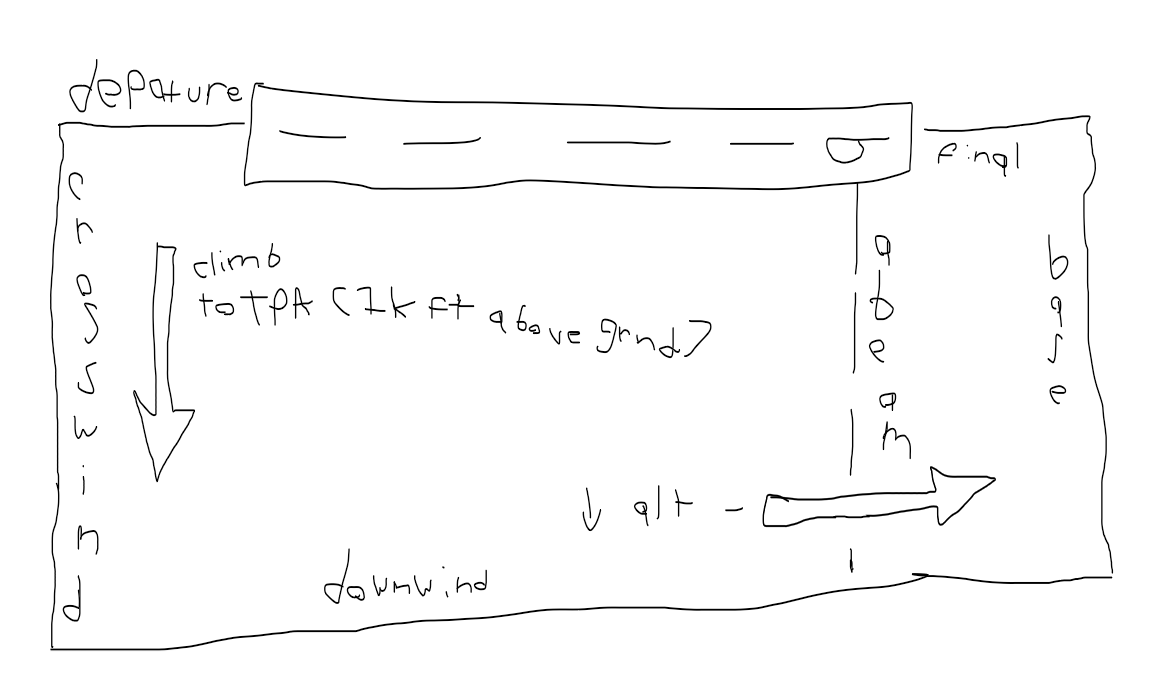 depature
final
crosswind
climb
to TPA (1k ft above grnd)
abeam
base
↓ alt -
downwind